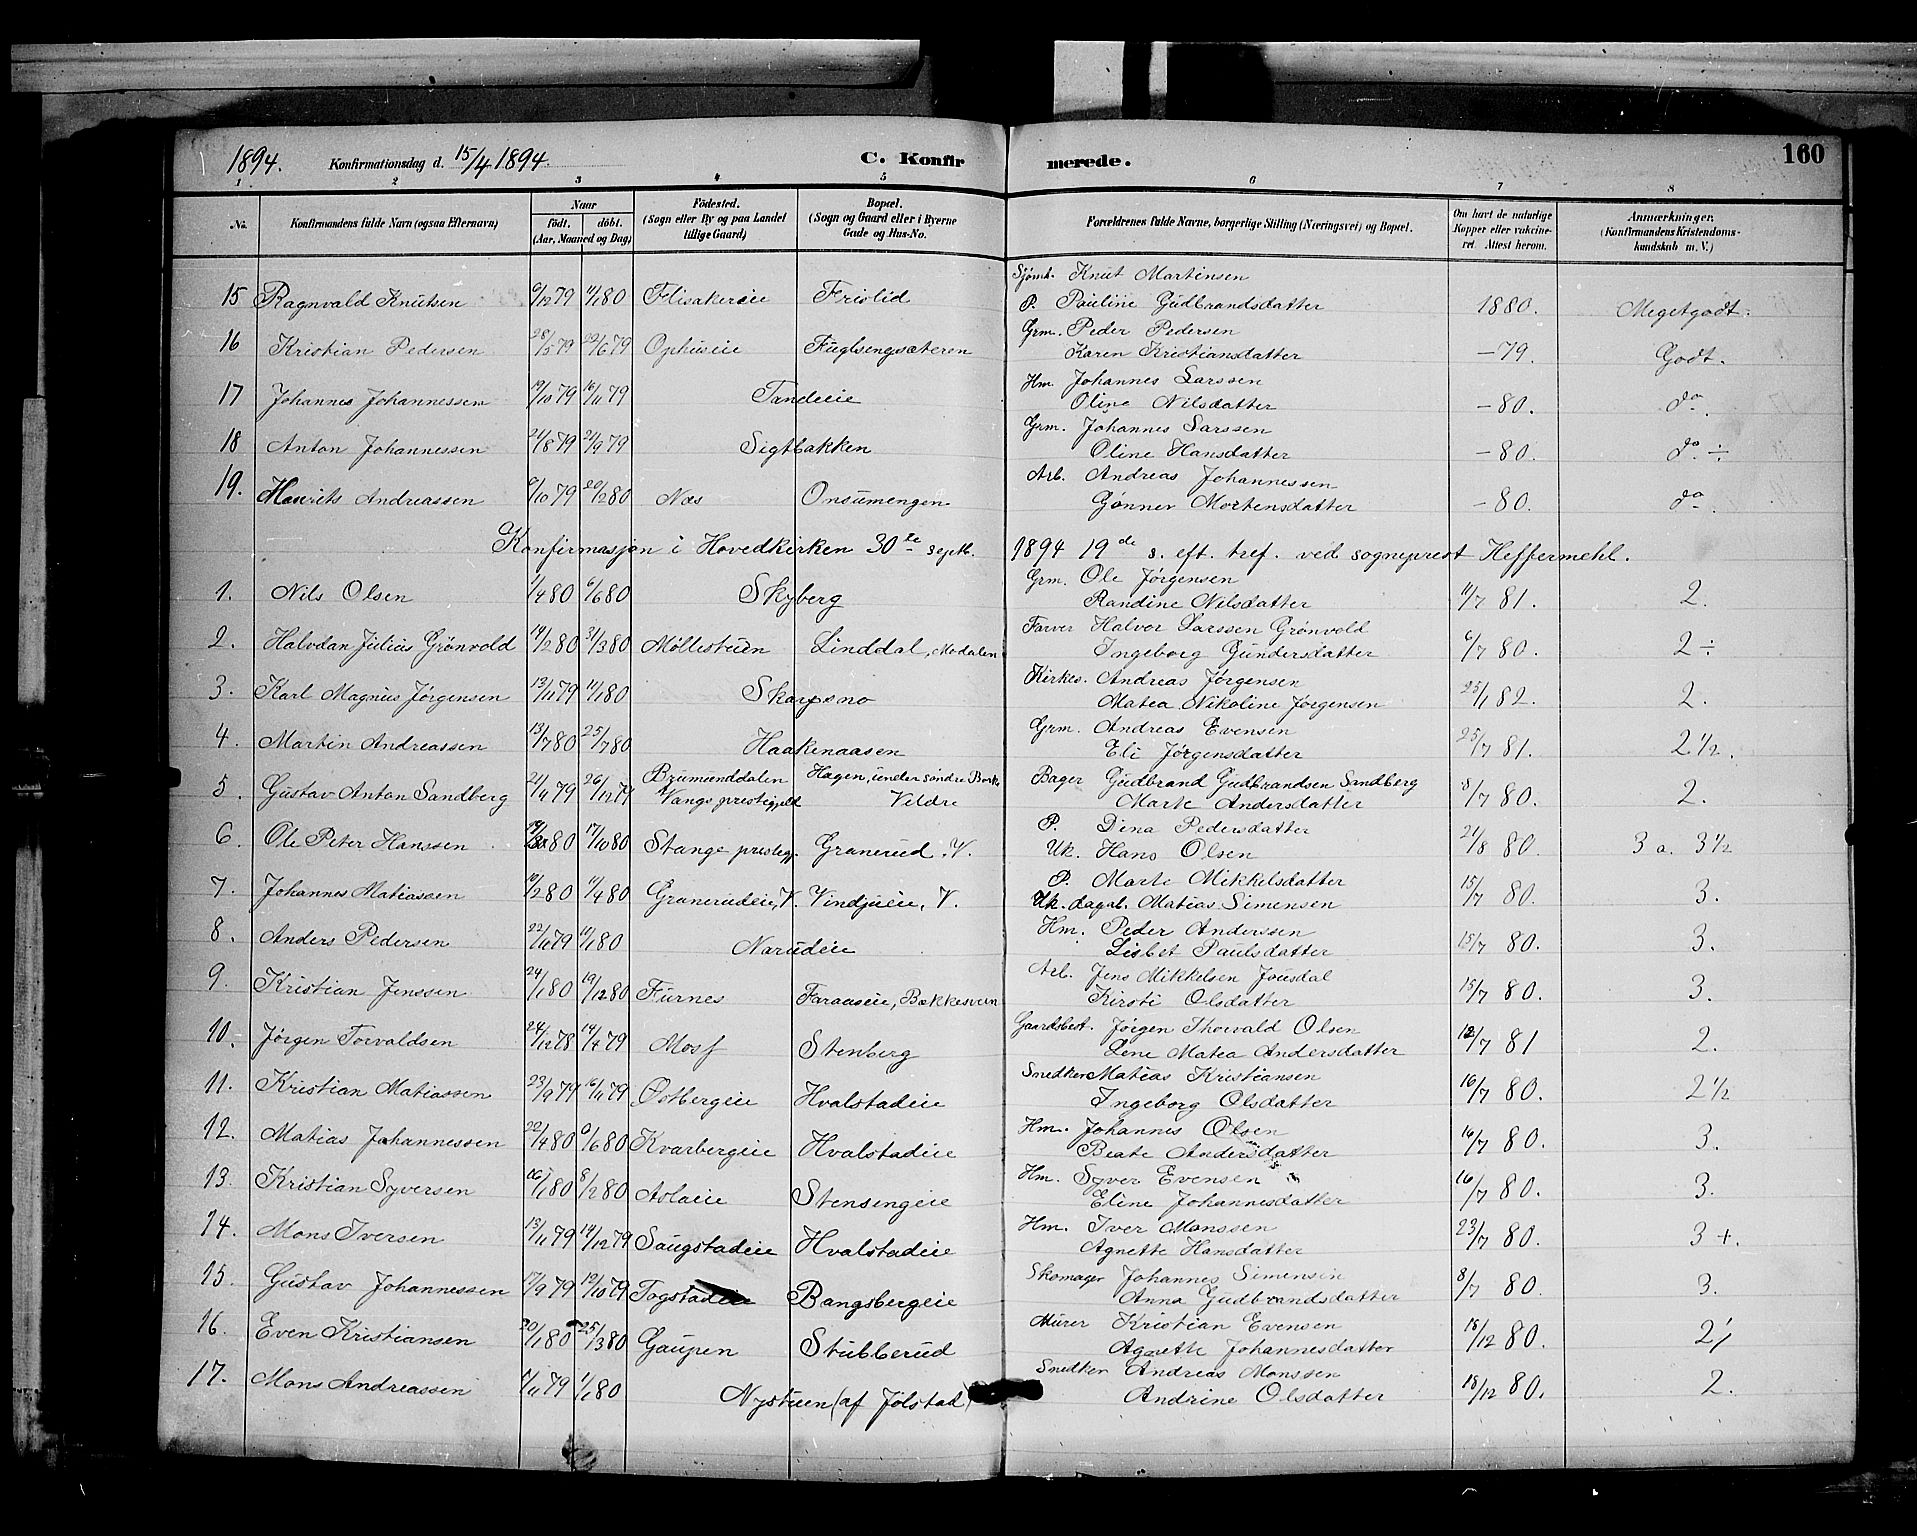 1894. Konfirmationsdag d. 15/4 1894. C. Konfirmerede. 160
1 2 3 4 5 6 7 8
No. Konfirmandens fulde Navn (ogsaa Efternavn) Naar født. døbt. (Aar, Maaned og Dag) Fødested. (Sogn eller By og paa Landet tillige Gaard) Bopæl. (Sogn og Gaard eller i Byerne Gade og Hus-No. Forældrenes fulde Navne, borgerlige Stilling (Næringsvei) og Bopæl. Om havt de naturlige Kopper eller vakcineret. Attest herom. Anmærkninger. (Konfirmandens Kristendomskundskab m. V.)
Sjömd. Knut Martinsen
15 Ragnvald Knutsen 6/12 79 11/1 80 Flisakereie Frivlid P. Pauline Gudbrandsdatter 1880. Megetgodt.
Grm. Peder Pedersen
16 Kristian Pedersen 28/5 79 22/6 79 Ophuseie Fuglsengsæteren Karen Kristiansdatter -79. Godt.
Hm. Johannes Larssen
17 Johannes Johannessen 19/10 79 16/11 79 Tandeeie Oline Nilsdatter -80. do.
Grm. Johannes Larssen
18 Anton Johannessen 21/8 79 21/9 79 Sigtbakken Oline Hansdatter -80. do. ÷
Arb. Andreas Johannessen
19. Henrits Andreassen 9/10 79 20/2 80 Næs Onsumengen Gønner Mortensdatter -80. do.
Konfirmasjon i Hovedkirken 30te septb. 1894 19de s. eft. tref. ved sogneprest Heffermehl.
Grm. Ole Jørgensen
1. Nils Olsen 1/4 80 6/6 80 Skyberg Randine Nilsdatter 11/7 81. 2.
Farver Halvor Larssen Grönvold
2. Halvdan Julius Grønvold 14/2 80 31/3 80 Møllestuen Linddal, Modalen Ingeborg Gundersdatter 6/7 80. 2 ÷
Kirkes. Andreas Jørgensen
3. Karl Magnus Jørgensen 13/11 79 11/1 80 Skarpsno Matea Nikoline Jørgensen 25/1 82. 2.
Grm. Andreas Evensen
4. Martin Andreassen 13/7 80 25/7 80 Haakenaasen Eli Jørgensdatter 25/7 81. 2 1/2.
Brumunddalen Hagen, under söndre Bager Gudbrand Gudbrandsen Sandberg
5. Gustav Anton Sandberg 21/11 79 26/12 79 Vangs prestigjeld Veldre Marte Andersdatter 8/7 80. 2.
P. Dina Pedersdatter
6. Ole Peter Hanssen 80 17/10 80 Stange prestegj. Granerud, V. Uk. Hans Olsen 21/8 80. 3 a. 3 1/2
P. Marte Mikkelsdatter
7. Johannes Matiassen 10/2 80 11/4 80 Granerudeie, V. Vindjueie, V. Uk. dagal. Matias Simensen 15/7 80. 3.
Hm. Peder Anderssen
8. Anders Pedersen 22/11 79 11/1 80 Narudeie Lisbet Paulsdatter 15/7 80. 3.
Arb. Jens Mikkelsen Jousdal
9. Kristian Jenssen 24/1 80 19/12 80 Furnes Faraaseie, Bækkesveen Kirsti Olsdatter 15/7 80. 3.
Gaardsbest. Jørgen Thorvald Olsen
10. Jørgen Torvaldsen 24/12 78 14/4 79 Moss Stenberg Lene Matea Andersdatter 12/7 81 2.
Snedker Matias Kristiansen
11. Kristian Matiassen 23/9 79 16/11 79 Østbergeie Hvalstadeie Ingeborg Olsdatter 16/7 80. 2 1/2
Hm. Johannes Olsen
12. Matias Johannessen 22/4 80 6/6 80 Kvarbergeie Hvalstadeie Beate Andersdatter 16/7 80. 3.
Hm. Syver Evensen
13. Kristian Syversen 16/1 80 8/2 80 Aslaeie Stensengeie Eline Johannesdatter 16/7 80. 3.
Hm. Iver Monssen
14. Mons Iversen 13/11 79 14/12 79 Saugstadeie Hvalstadeie Agnette Hansdatter 23/7 80. 3 +.
Skomager Johannes Simensen
15. Gustav Johannessen 17/9 79 12/10 79 Togstadeie Bangsbergeie Anna Gudbrandsdatter 8/7 80. 3.
Murer Kristian Evensen
16. Even Kristiansen 20/1 80 25/3 80 Gaupen Stubberud Agnette Johannesdatter 18/12 80. 2/
Snedker Andreas Monssen
17. Mons Andreassen 11/11 79 1/1 80 Nystuen (af Jølstad) Andrine Olsdatter 18/12 80. 2.